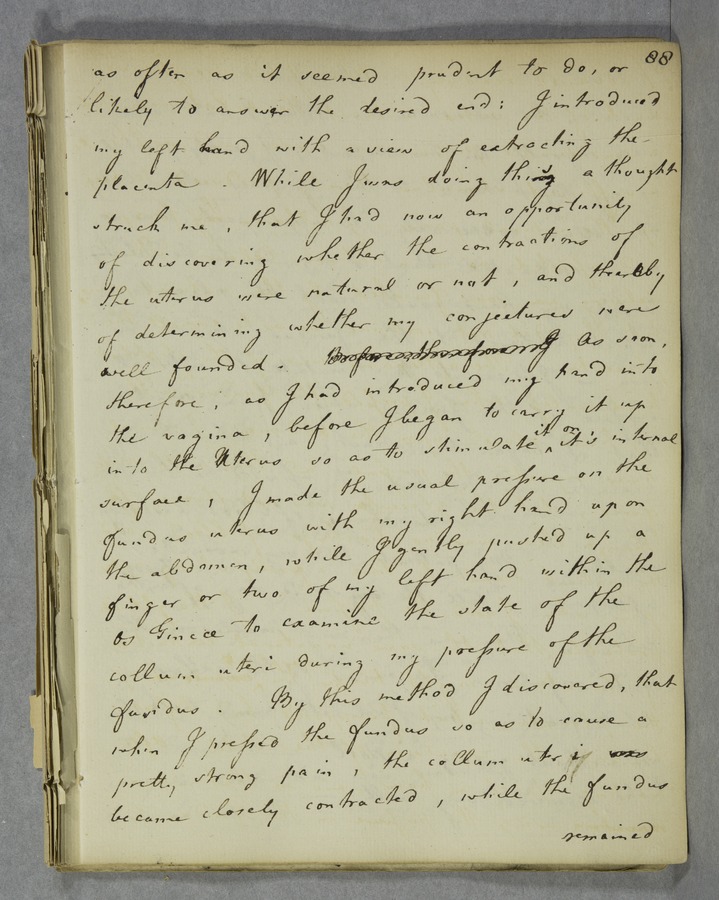 88
as often as it seemed prudent to do, or
likely to answer the desired end: I introduced
my left hand with a view of extracting the
placenta. While I was doing this a thought
struck me, that I had now an opportunity
of discovering whether the contractions of
the uterus were natural or not, and thereby
of determining whether my conjectures were
well founded. As soon,
therefore, as I had introduced my hand into
the vagina, before I began to carry it up
into the Uterus so as to stimulate it on its internal
surface, I made the usual pressure on the
fundus uterus with my right hand upon
the abdomen, while I gently pushed up a
finger or two of my left hand within the
os Tincæ to examine the state of the
collum uteri during my pressure of the
fundus. By this method I discovered, that
when I pressed the fundus so as to cause a
pretty strong pain, the collum uteri was
became closely contracted, while the fundus
remained